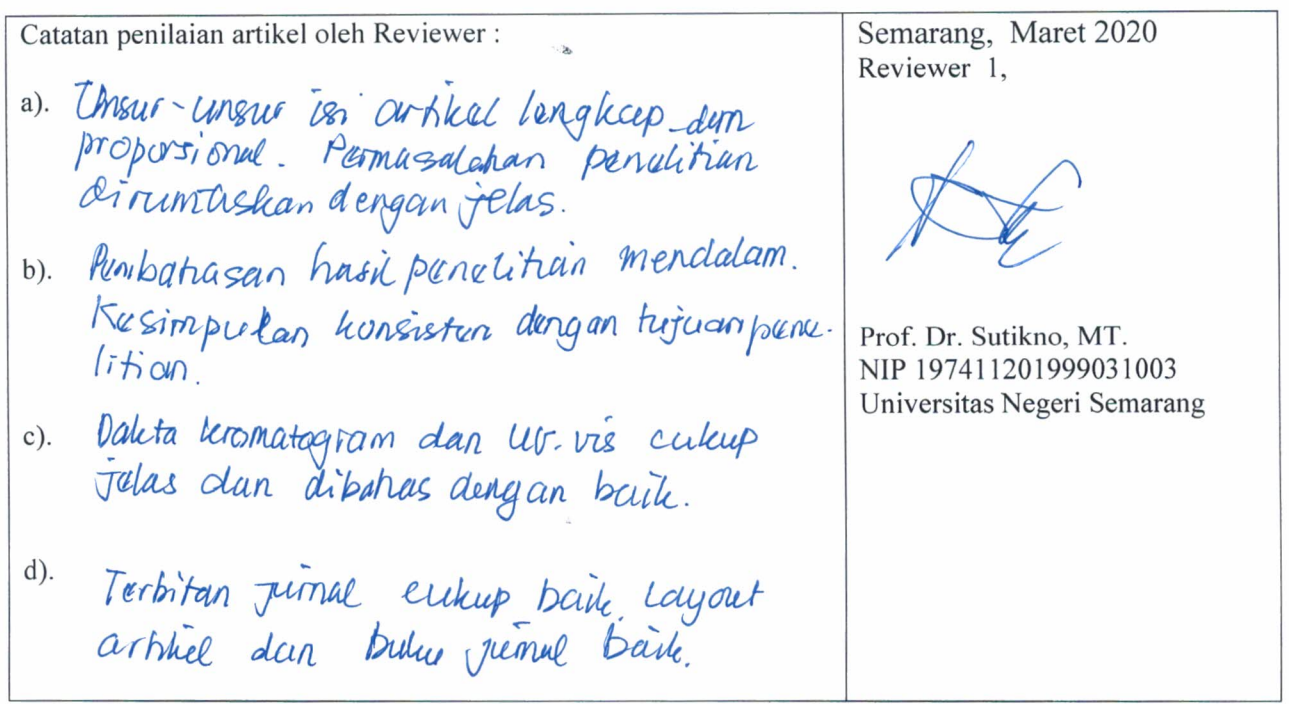 Catatan penilaian artikel oleh Reviewer :
a). Unsur-unsur isi artikel lengkap dan
proporsional. Permasalahan penelitian
dirumuskan dengan jelas.
b). Pembahasan hasil penelitian mendalam.
Kesimpulan konsisten dengan tujuan pene-
litian.
c). Dakta kromatogram dan UV-vis cukup
jelas dan dibahas dengan baik.
d). Terbitan jurnal cukup baik. Layout
artikel dan buku jurnal baik.
Semarang, Maret 2020
Reviewer 1,
Prof. Dr. Sutikno, MT.
NIP 197411201999031003
Universitas Negeri Semarang